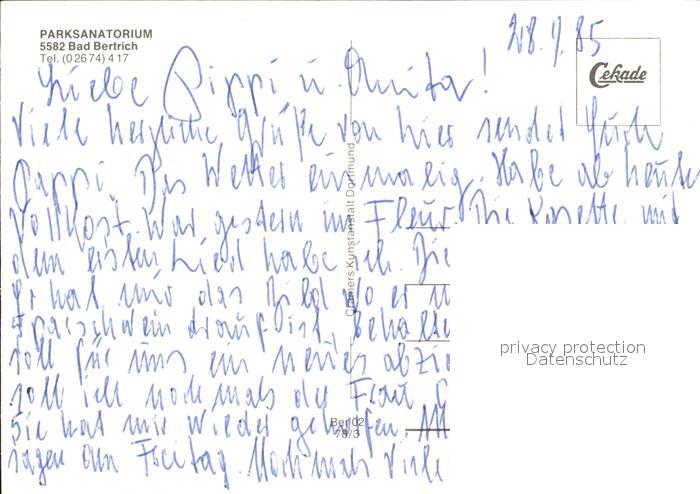 PARKSANATORIUM
5582 Bad Bertrich
Tel. (02674) 417
28.9.85
Cekade
Liebe Pippi u. Anita!
Viele herzliche Grüße von hier sendet Euch
Pappi. Das Wetter einmalig. Habe ab heute
Vollkost. War gestern im Fleur. Die Kasette mit
dem ersten Lied habe ich. Die
Er hat mir das Bild wo er
Sparschwein drauf ist behalte
soll für uns ein neues abzie
soll ich nochmals der Frau
Sie hat mir wieder geholfen.
sagen am Freitag. Nochmals Viele
Cramers Kunstanstalt Dortmund
Ber 02
78/3
privacy protection
Datenschutz